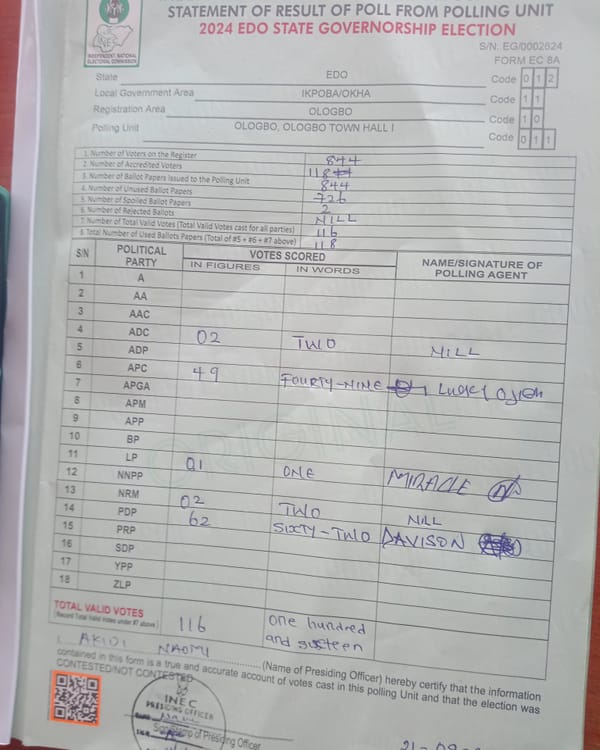 STATEMENT OF RESULT OF POLL FROM POLLING UNIT
2024 EDO STATE GOVERNORSHIP ELECTION
INEC
INDEPENDENT NATIONAL ELECTORAL COMMISSION
S/N. EG/0002624
FORM EC 8A
State EDO Code 0 1 2
Local Government Area IKPOBA/OKHA Code 1 1
Registration Area OLOGBO Code 1 0
Polling Unit OLOGBO, OLOGBO TOWN HALL I Code 0 1 1
1. Number of Voters on the Register 844
2. Number of Accredited Voters 118
3. Number of Ballot Papers Issued to the Polling Unit 844
4. Number of Unused Ballot Papers 726
5. Number of Spoiled Ballot Papers 2
6. Number of Rejected Ballots NILL
7. Number of Total Valid Votes (Total Valid Votes cast for all parties) 116
8. Total Number of Used Ballots Papers (Total of #5 + #6 + #7 above) 118
S/N POLITICAL PARTY VOTES SCORED NAME/SIGNATURE OF POLLING AGENT
IN FIGURES IN WORDS
1 A
2 AA
3 AAC
4 ADC 02 TWO NILL
5 ADP
6 APC 49 FOURTY-NINE
7 APGA
8 APM
9 APP
10 BP
11 LP 01 ONE MIRACLE
12 NNPP
13 NRM 02 TWO NILL
14 PDP 62 SIXTY-TWO DAVISON
15 PRP
16 SDP
17 YPP
18 ZLP
ORIGINAL
TOTAL VALID VOTES 116 one hundred
(Record Total Valid Votes under #7 above) and sixteen
I, AKIDI NAOMI (Name of Presiding Officer) hereby certify that the information
contained in this form is a true and accurate account of votes cast in this polling Unit and that the election was
CONTESTED/NOT CONTESTED
INEC
PRESIDING OFFICER
Signature/Stamp of Presiding Officer